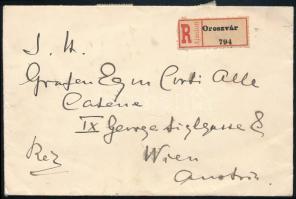 R Ajánlott Oroszvár
794
S. H.
Grafen Egon Corti Alle
Catene
IX George Siglgasse 8
Rez Wien
Austria.